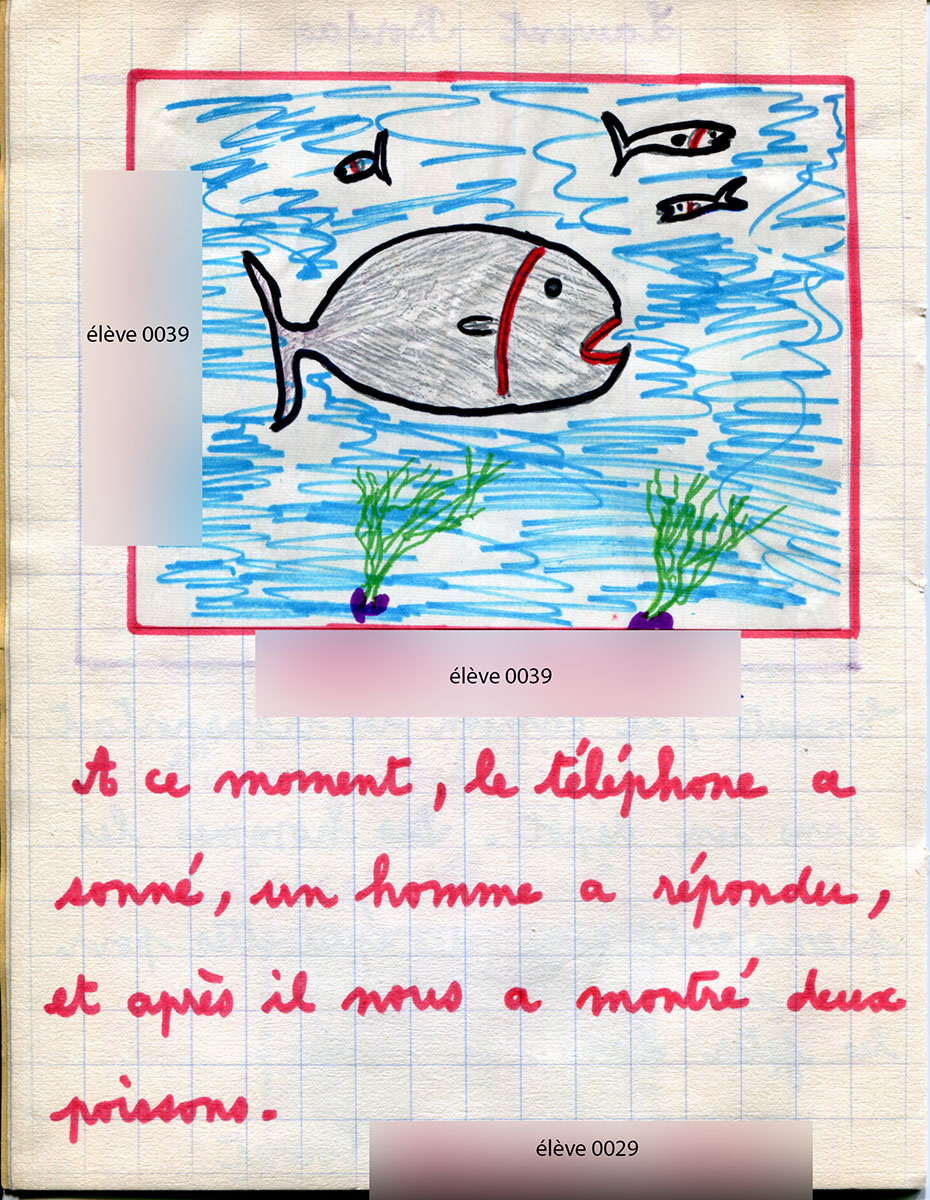 élève 0039
élève 0039
A ce moment, le téléphone a
sonné, un homme a répondu,
et après il nous a montré deux
poissons.
élève 0029